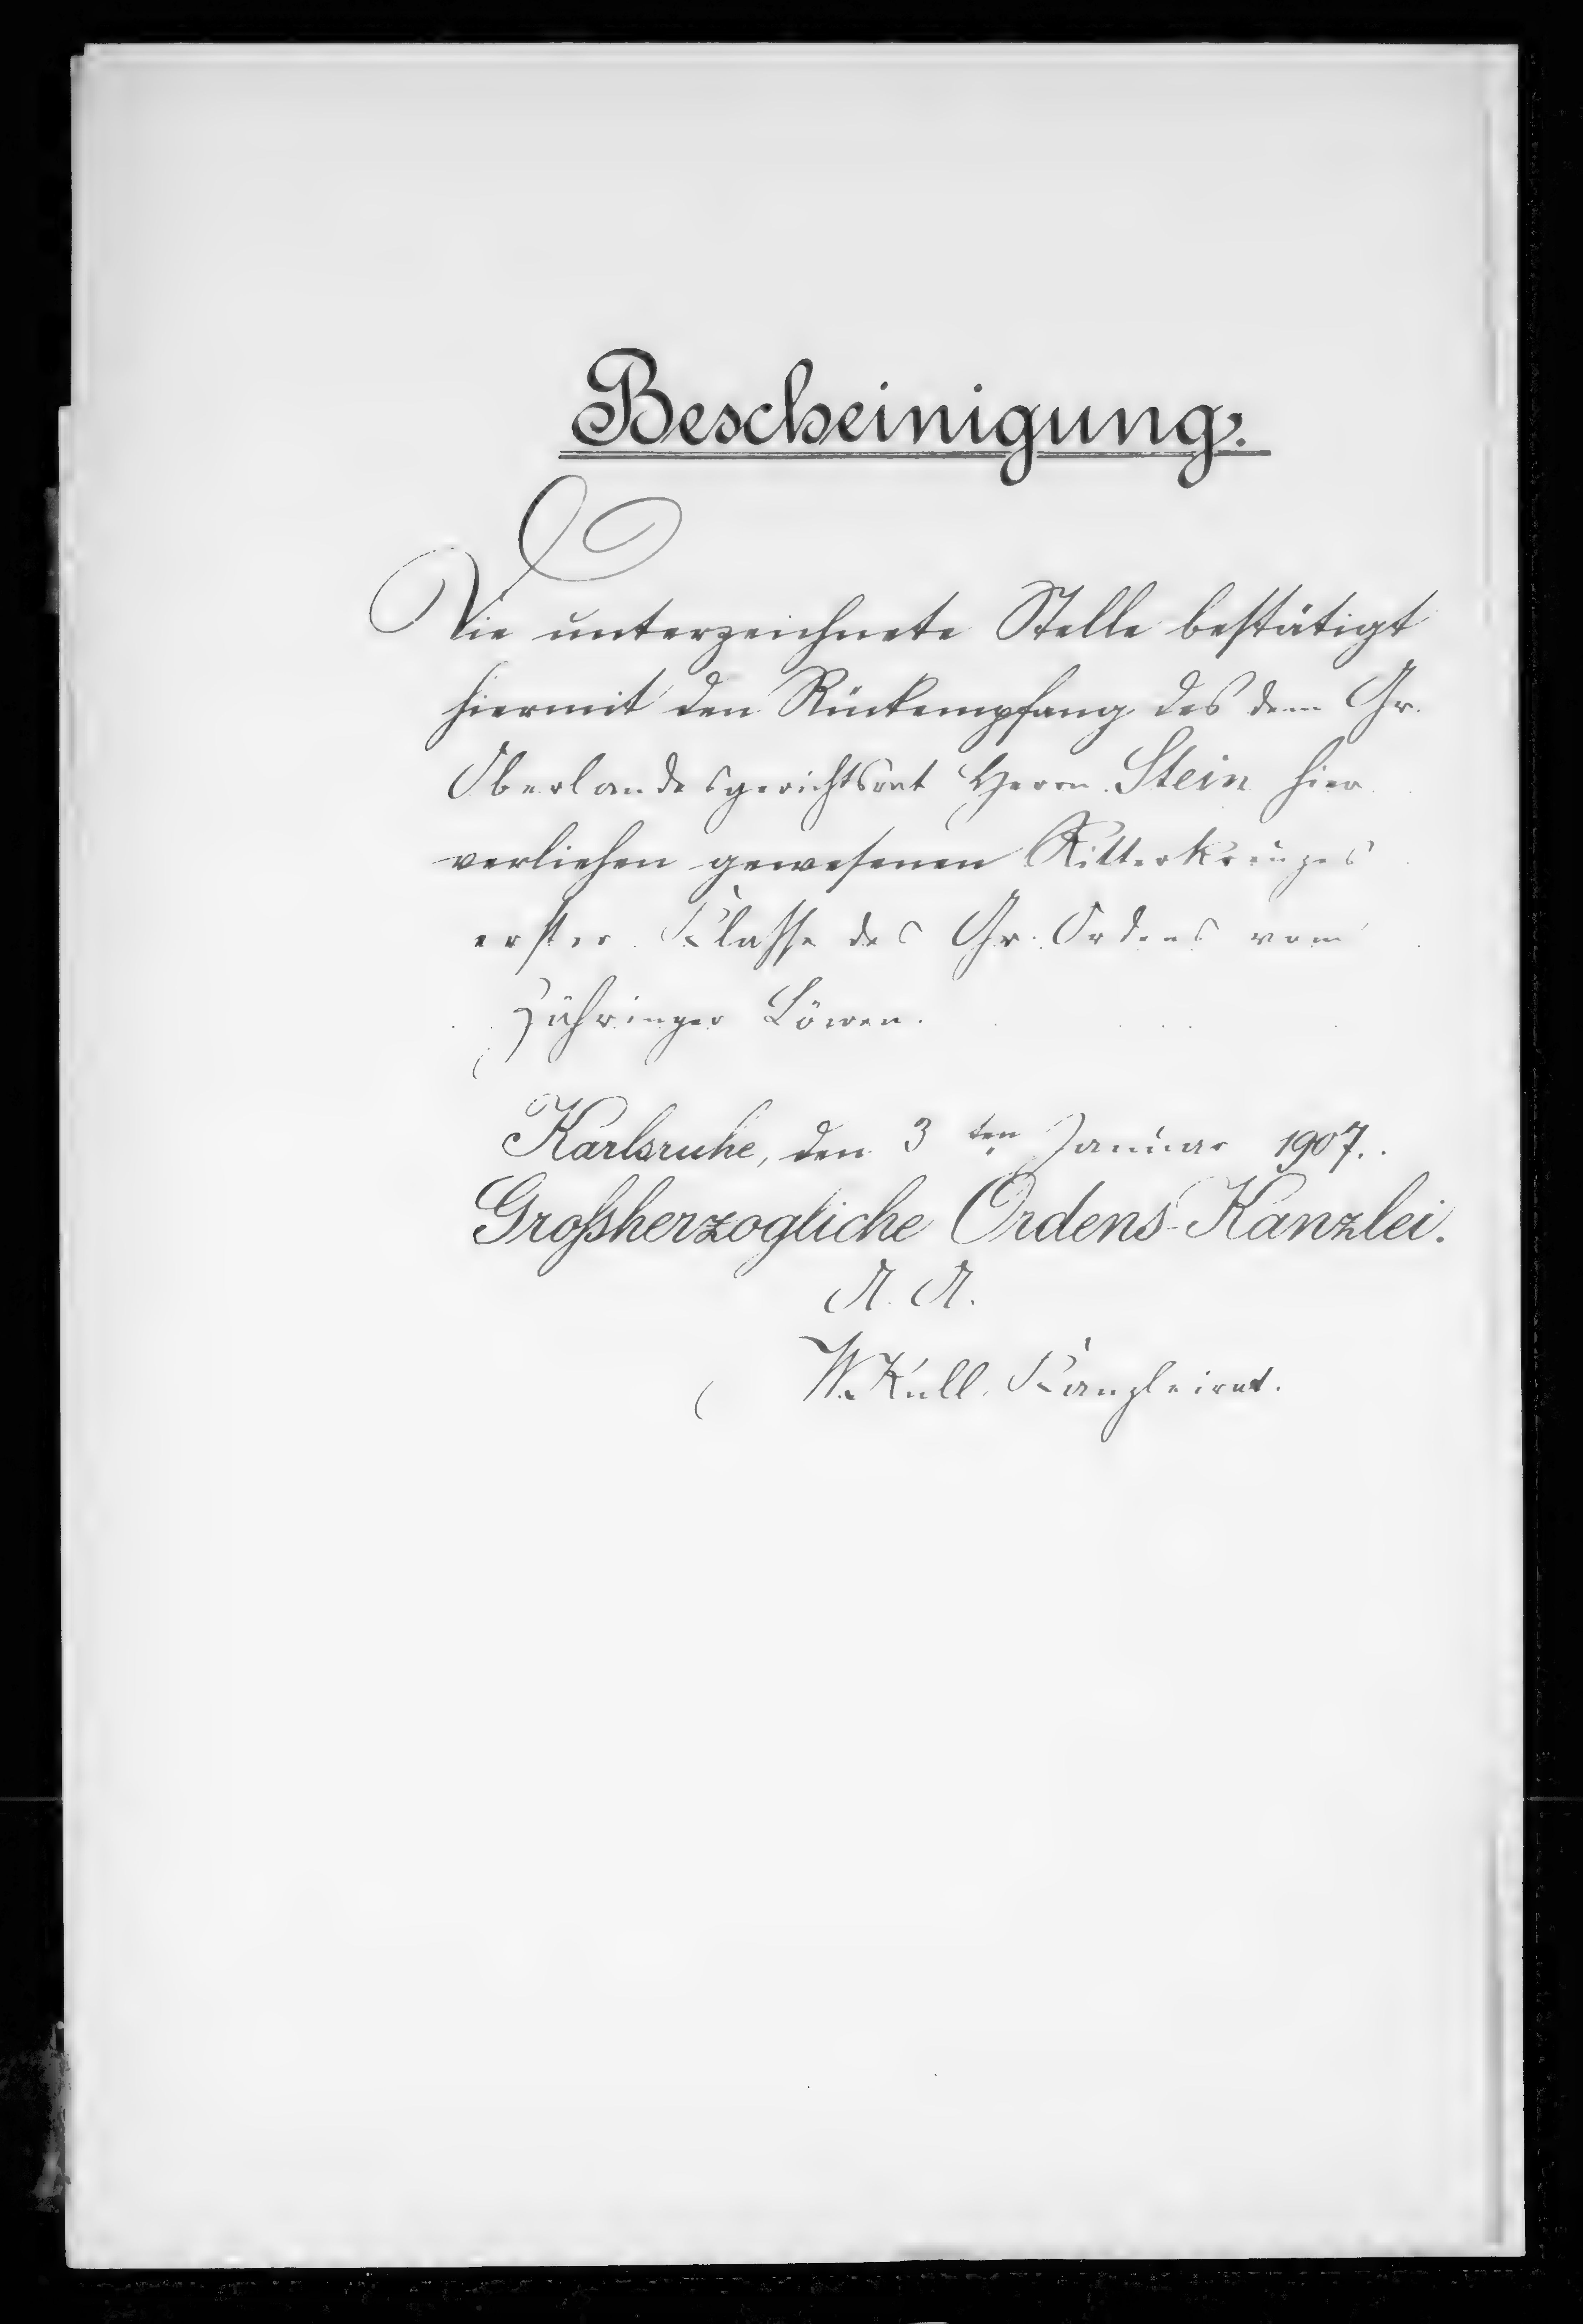 Bescheinigung.
Die unterzeichnete Stelle bestätigt
hiermit den Rückempfang des dem Gr.
Oberlandesgerichtsrat Herrn Stein hier
verliehen gewesenen Ritterkreuzes
erster Klasse des Gr. Ordens vom
Zähringer Löwen.
Karlsruhe, den 3ten Januar 1907.
Großherzogliche Ordens-Kanzlei.
A. A.
W. Kull, Kanzleirat.